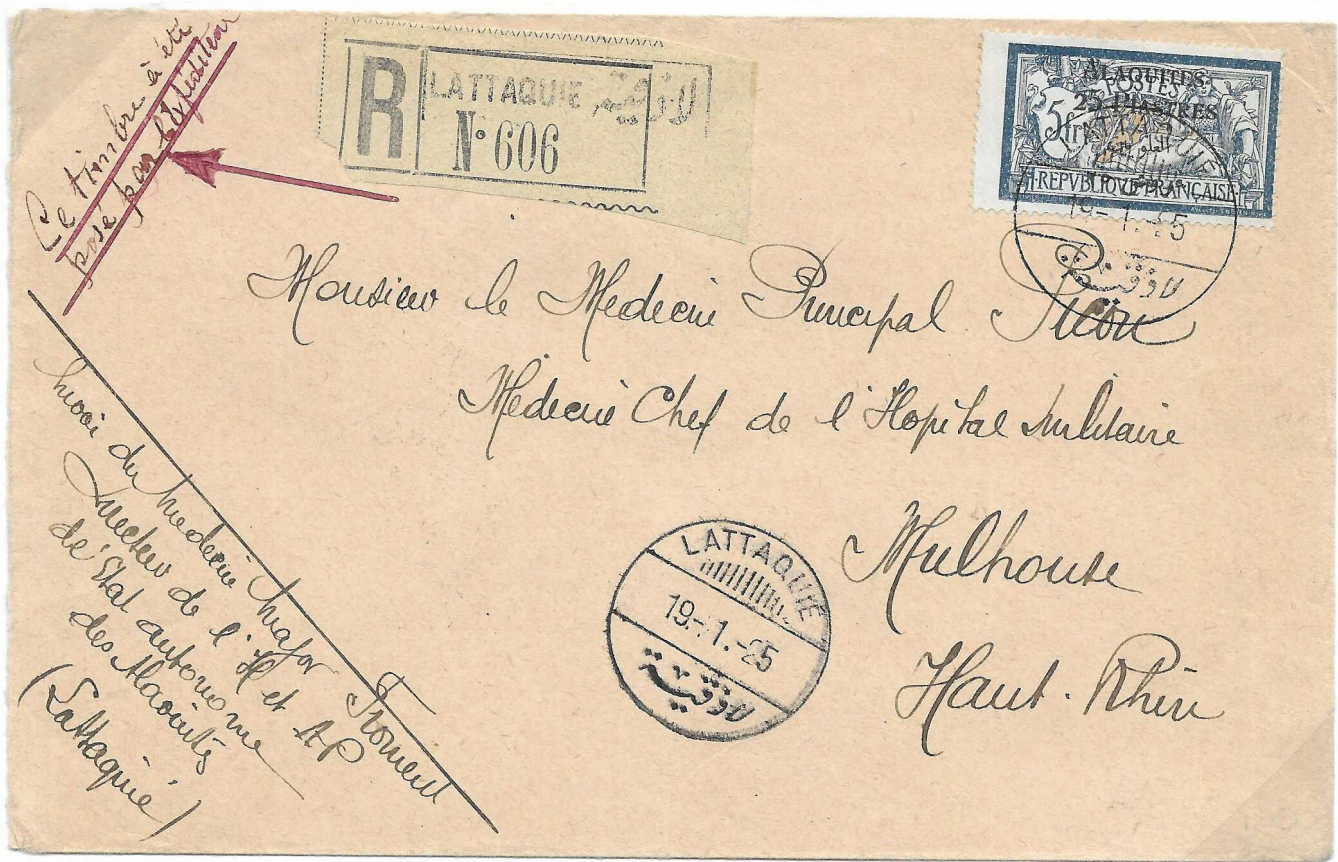 Ce timbre à été
posé par l'Expéditeur
R
LATTAQUIE لاذقية
N° 606
ALAOUITES
POSTES
25 PIASTRES
5 fr
REPVBLIQVE FRANÇAISE
19-1.-25
لاذقية
Monsieur le Medecin Principal
Médecin Chef de l'Hopital Militaire
Mulhouse
Haut-Rhin
LATTAQUIE
19-1.-25
لاذقية
Envoi du Medecin Major Froment
Directeur de l'H et AP
de l'Etat autonome
des Alaouites
(Lattaquié)